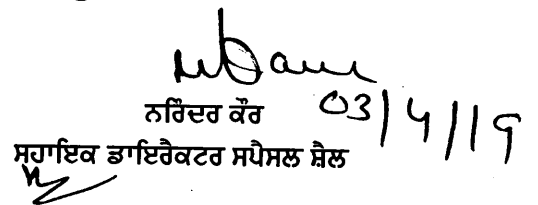 ਨਰਿੰਦਰ ਕੌਰ 03/4/19
ਸਹਾਇਕ ਡਾਇਰੈਕਟਰ ਸਪੈਸਲ ਸ਼ੈਲ